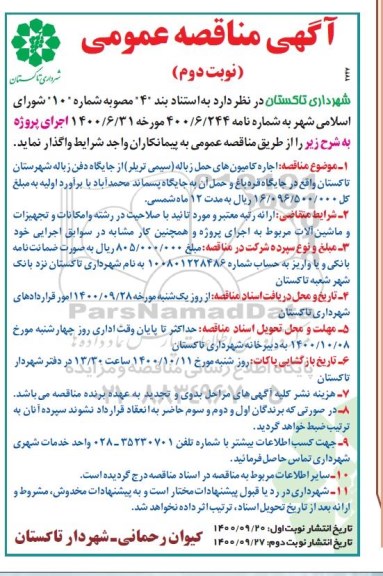 آگهی مناقصه عمومی
(نوبت دوم)
شهرداری تاکستان
شهرداری تاکستان در نظر دارد به استناد بند "۴" مصوبه شماره "۱۰" شورای
اسلامی شهر به شماره نامه ۴۰۰/۶/۲۴۴ مورخه ۱۴۰۰/۶/۳۱ اجرای پروژه
به شرح زیر را از طریق مناقصه عمومی به پیمانکاران واجد شرایط واگذار نماید.
۱ـ موضوع مناقصه: اجاره کامیون های حمل زباله (سیمی تریلر) از جایگاه دفن زباله شهرستان
تاکستان واقع در جایگاه قره باغ و حمل آن به جایگاه پسماند محمدآباد با برآورد اولیه به مبلغ
کل ۱۶/۰۹۶/۵۰۰/۰۰۰ ریال به مدت ۱۲ ماه شمسی.
۲ـ شرایط متقاضی: ارائه رتبه معتبر و مورد تائید با صلاحیت در رشته وامکانات و تجهیزات
و ماشین آلات مربوط به اجرای پروژه و همچنین کار مشابه در سوابق اجرایی خود
۳ـ مبلغ و نوع سپرده شرکت در مناقصه: مبلغ ۸۰۵/۰۰۰/۰۰۰ ریال به صورت ضمانت نامه
بانکی و یا واریز به حساب شماره ۱۰۰۸۰۱۲۲۸۴۸۶ به نام شهرداری تاکستان نزد بانک
شهر شعبه تاکستان
۴ـ تاریخ و محل دریافت اسناد مناقصه: از روز یک شنبه مورخه ۱۴۰۰/۰۹/۲۸ امور قراردادهای
شهرداری تاکستان
۵ـ مهلت و محل تحویل اسناد مناقصه: حداکثر تا پایان وقت اداری روز چهارشنبه مورخ
۱۴۰۰/۱۰/۰۸ به دبیرخانه شهرداری تاکستان
۶ـ تاریخ بازگشایی پاکات: روز شنبه مورخ ۱۴۰۰/۱۰/۱۱ ساعت ۱۳/۳۰ در دفتر شهردار
تاکستان
۷ـ هزینه نشر کلیه آگهی های مراحل بدوی و تجدید به عهده برنده مناقصه می باشد.
۸ـ در صورتی که برندگان اول و دوم و سوم حاضر به انعقاد قرارداد نشوند سپرده آنان به
ترتیب ضبط خواهد گردید.
۹ـ جهت کسب اطلاعات بیشتر با شماره تلفن ۳۵۲۳۰۷۰۱ـ۰۲۸ واحد خدمات شهری
شهرداری تماس حاصل فرمائید.
۱۰ـ سایر اطلاعات مربوط به مناقصه در اسناد مناقصه درج گردیده است.
۱۱ـ شهرداری در رد یا قبول پیشنهادات مختار است و به پیشنهادات مخدوش، مشروط و
ارائه بعد از تاریخ تحویل اسناد، ترتیب اثر داده نخواهد شد.
تاریخ انتشار نوبت اول: ۱۴۰۰/۰۹/۲۰
تاریخ انتشار نوبت دوم: ۱۴۰۰/۰۹/۲۷
کیوان رحمانی ـ شهردار تاکستان
ParsNamadData